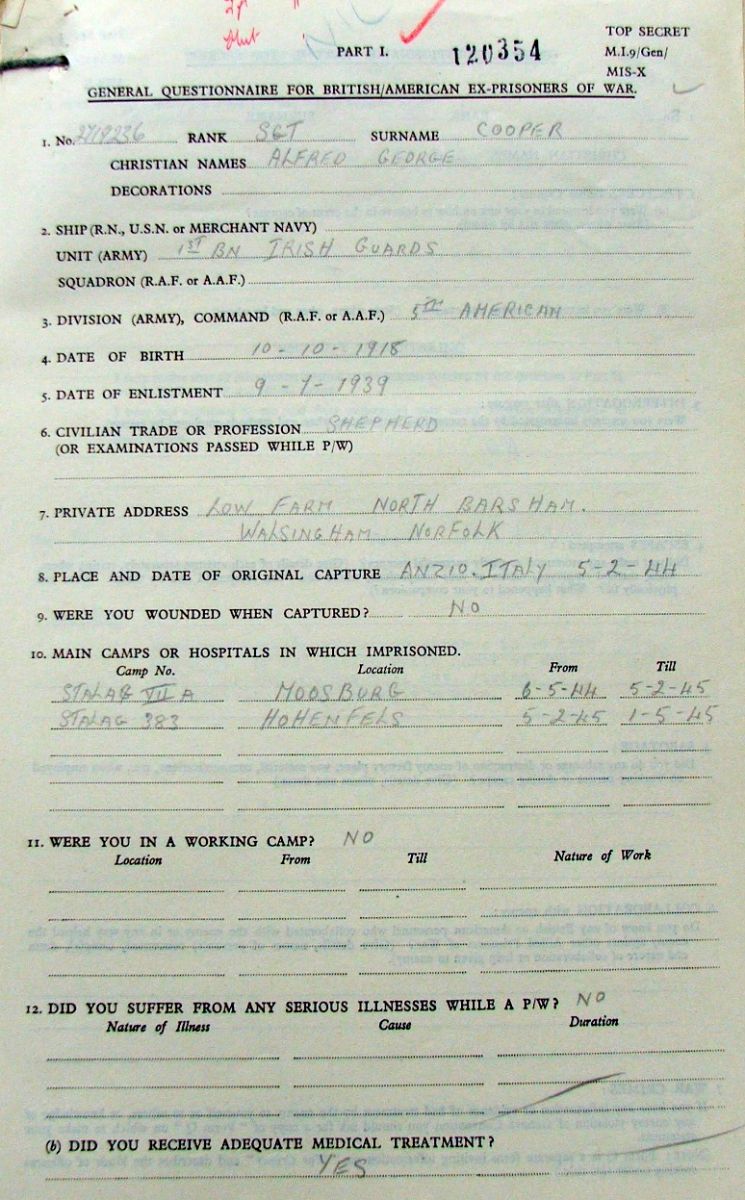 PART I.
120354
TOP SECRET
M.I.9/Gen/
MIS-X
GENERAL QUESTIONNAIRE FOR BRITISH/AMERICAN EX-PRISONERS OF WAR.
1. No. 2719236 RANK SGT SURNAME COOPER
CHRISTIAN NAMES ALFRED GEORGE
DECORATIONS
2. SHIP (R.N., U.S.N. or MERCHANT NAVY)
UNIT (ARMY) 1ST BN IRISH GUARDS
SQUADRON (R.A.F. or A.A.F.)
3. DIVISION (ARMY), COMMAND (R.A.F. or A.A.F.) 5TH AMERICAN
4. DATE OF BIRTH 10-10-1918
5. DATE OF ENLISTMENT 9-9-1939
6. CIVILIAN TRADE OR PROFESSION SHEPHERD
(OR EXAMINATIONS PASSED WHILE P/W)
7. PRIVATE ADDRESS LOW FARM NORTH BARSHAM.
WALSINGHAM NORFOLK
8. PLACE AND DATE OF ORIGINAL CAPTURE ANZIO. ITALY 5-2-44
9. WERE YOU WOUNDED WHEN CAPTURED? NO
10. MAIN CAMPS OR HOSPITALS IN WHICH IMPRISONED.
Camp No. Location From Till
STALAG VII A MOOSBURG 6-5-44 5-2-45
STALAG 383 HOHENFELS 5-2-45 1-5-45
11. WERE YOU IN A WORKING CAMP? NO
Location From Till Nature of Work
12. DID YOU SUFFER FROM ANY SERIOUS ILLNESSES WHILE A P/W? NO
Nature of Illness Cause Duration
(b) DID YOU RECEIVE ADEQUATE MEDICAL TREATMENT?
YES